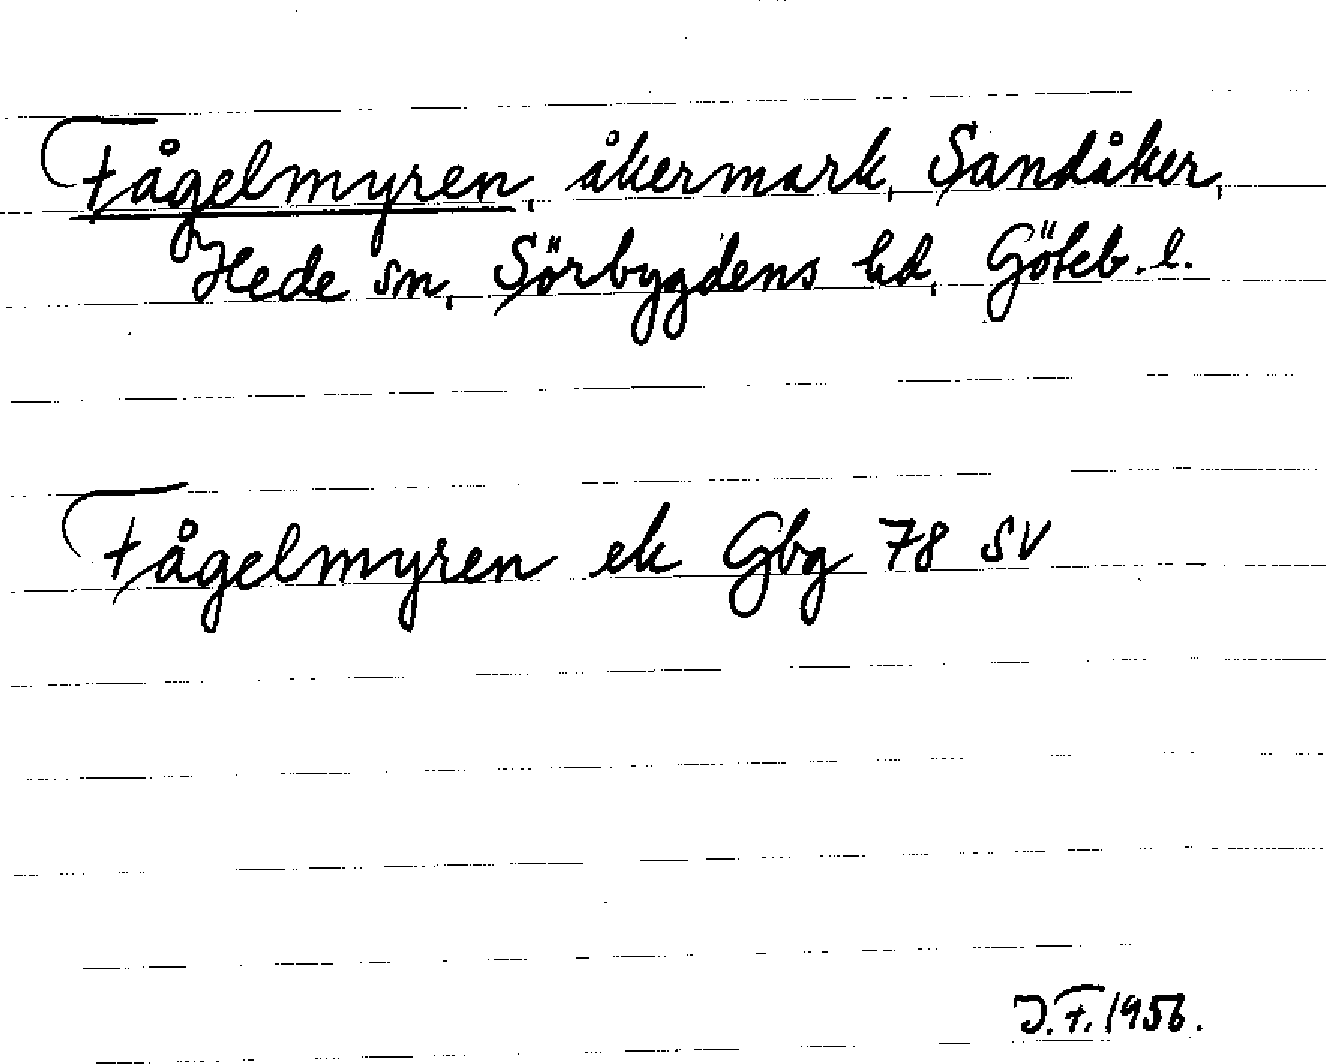 Fågelmyren, åkermark, Sandåker,
Hede sn, Sörbygdens hd, Göteb. l.
Fågelmyren ek Gbg 78 SV
J.F. 1956.